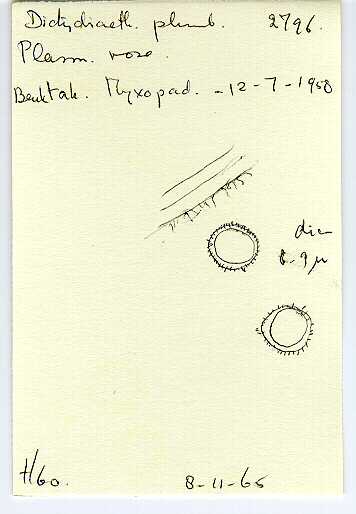 Dictydiaeth. plumb. 2796.
Plasm. rose.
Beuktak. Myxopad. - 12-7-1958
dia
8-9 µ
H60.
8-11-65